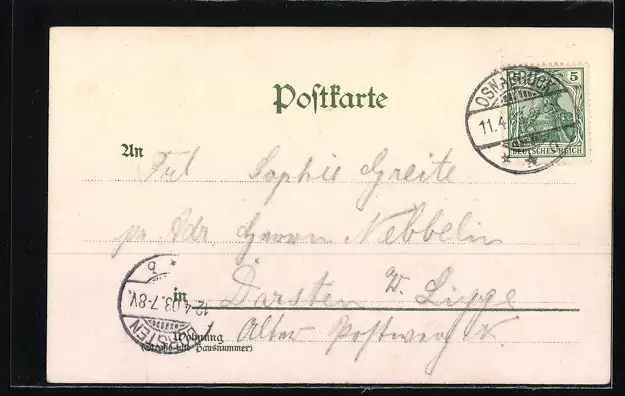 Postkarte
OSNABRÜCK
11.4
5
DEUTSCHES REICH
An Frl Sophie Greite
pr. Adr. Herrn Nebbelin
12.4.03.7-8V.
in Dorsten
Wohnung
(Straße und Hausnummer)
Alter Postweg